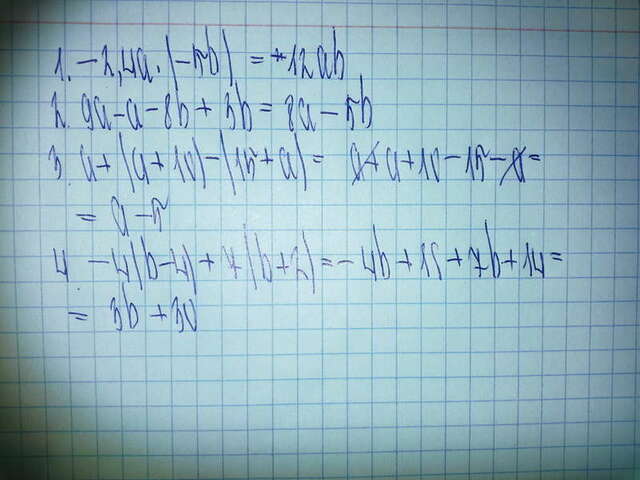 1. -2,4a·(-5b) = +12ab
2. 9a-a-8b+3b = 8a-5b
3. a+(a+10)-(15+a)= a+a+10-15-a=
= a-5
4 -4(b-4)+7(b+2)=-4b+16+7b+14=
= 3b+30